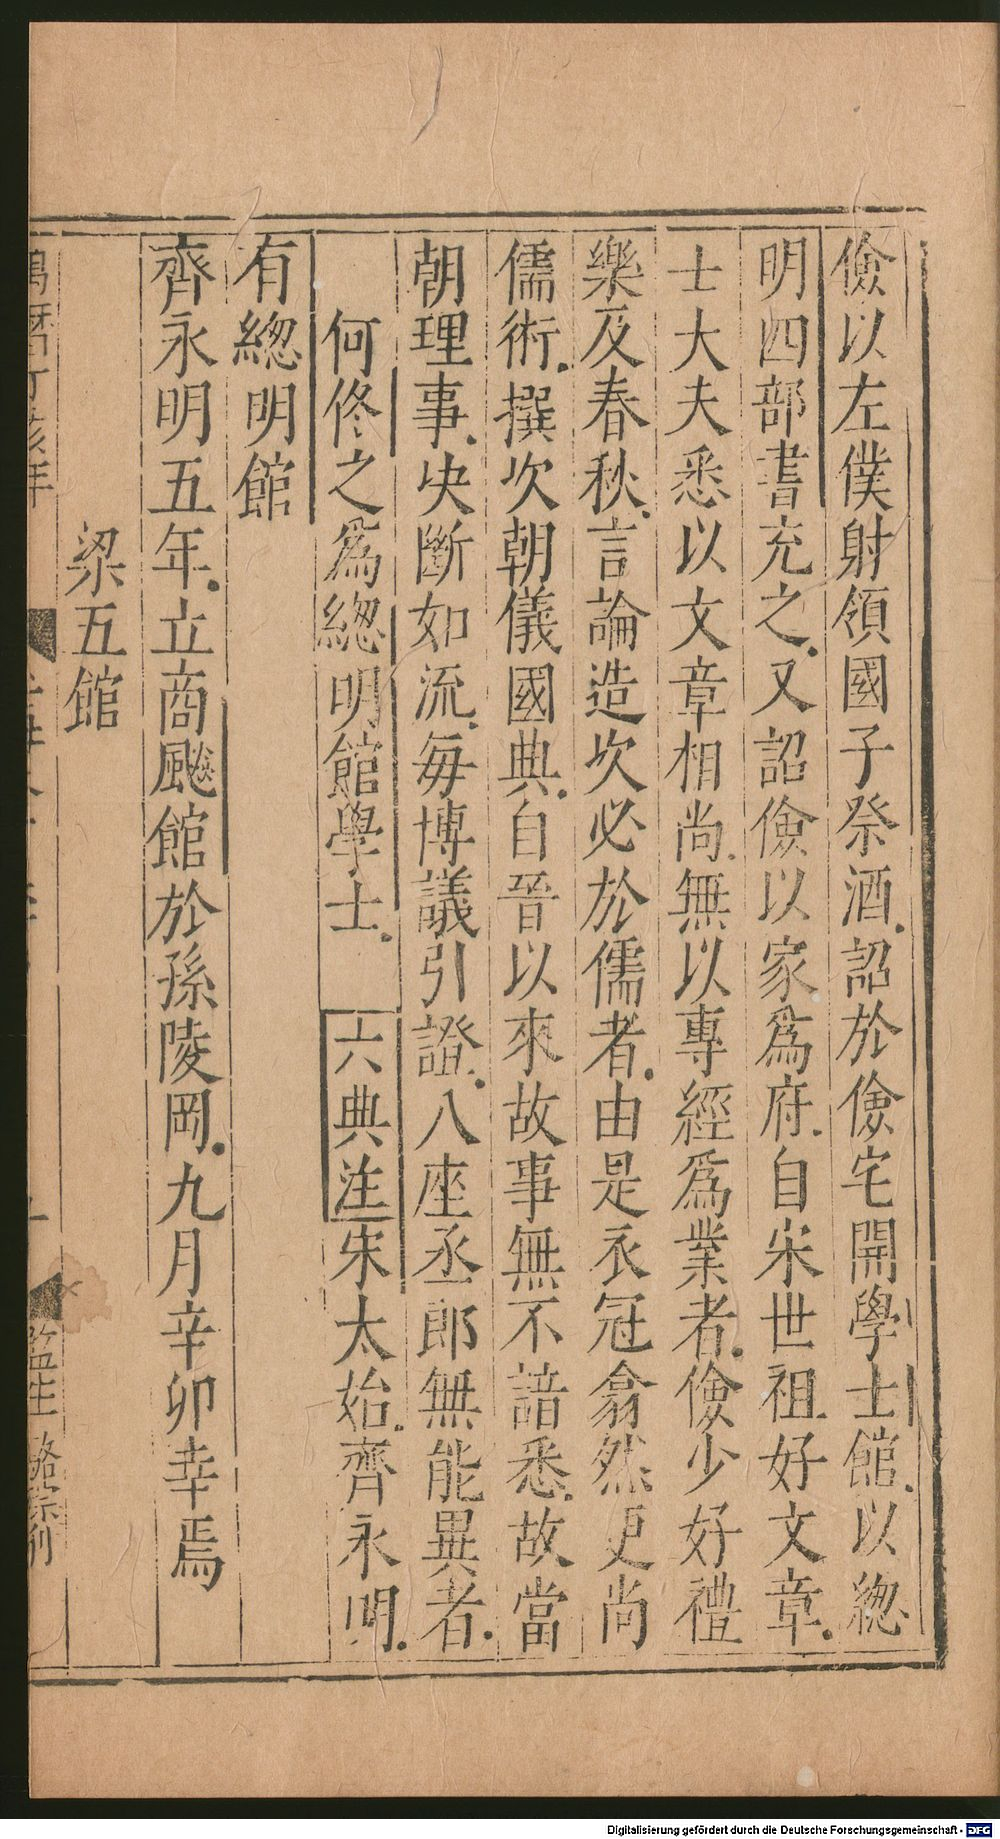 儉以左僕射領國子祭酒詔於儉宅開學士館以緫
明四部書充之又詔儉以家爲府自宋世祖好文章
士大夫悉以文章相尚無以專經爲業者儉少好禮
樂及春秋言論造次必於儒者由是衣冠翕然更尚
儒術撰次朝儀國典自晉以來故事無不諳悉故當
朝理事決斷如流毎博議引證八座丞郎無能異者
何佟之爲緫明館學士 六典注宋太始齊永明
有緫明館
齊永明五年立商飈館於孫陵岡九月辛卯幸焉
梁五館
萬曆丁亥年
監生
Digitalisierung gefördert durch die Deutsche Forschungsgemeinschaft - DFG